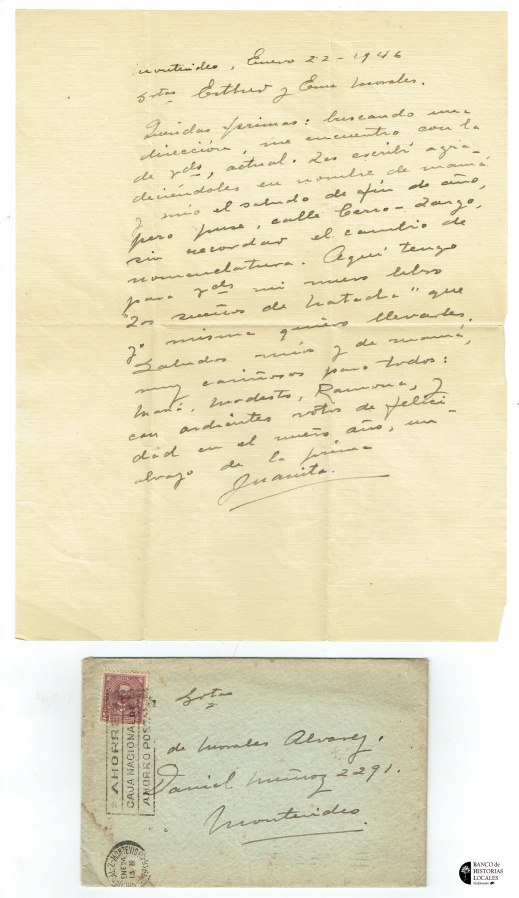 Montevideo, Enero 22-1946
Srtas Esther y Ema Morales.
Queridas primas: buscando una
dirección, me encuentro con la
de Vds, actual. Les escribí agra-
deciéndoles en nombre de mamá
y mío el saludo de fin de año,
pero puse, calle Cerro-Largo,
sin recordar el cambio de
nomenclatura. Aquí tengo
para Vds mi nuevo libro
"Los sueños de Natacha" que
yo misma quiero llevarles.
Saludos míos y de mamá,
muy cariñosos para todos:
María, Modesto, Ramona, y
con ardientes votos de felici-
dad en el nuevo año, un
abrazo de la prima
Juanita.
Srtas
de Morales Alvarez.
Daniel Muñoz 2291.
Montevideo
AHORRE
CAJA NACIONAL
AHORRO POST
MONTEVIDEO
ENE 24
BANCO de
HISTORIAS
LOCALES